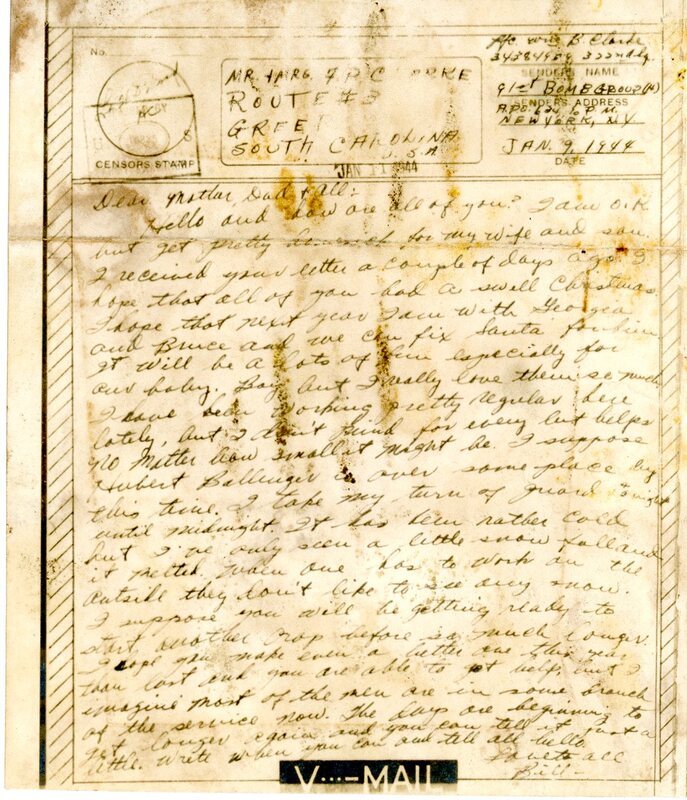 No.
Pfc Wm B. Clarke
34384954 322nd Sq.
SENDER'S NAME
91st BOMB GROUP (H)
SENDER'S ADDRESS
A.P.O. 634 % P.M.
NEW YORK, N.Y.
JAN. 9, 1944
DATE
MR. & MRS. J. P. CLARKE
ROUTE #3
GREER
SOUTH CAROLINA
U.S.A
U S
CENSOR'S STAMP
JAN 11 1944
Dear Mother, Dad & all:
Hello and how are all of you? I am O.K
but get pretty for my wife and son.
I received your letter a couple of days ago. I
hope that all of you had a swell Christmas.
I hope that next year I am with Georgea
and Bruce and we can fix Santa for him
It will be a lots of fun especially for
our baby. Boy but I really love them so much.
I have been working pretty regular here
lately, but I don't mind for every bit helps
no matter how small it might be. I suppose
Hubert Ballenger is over some place by
this time. I take my turn of guard tonight
until midnight. It has been rather cold
but I've only seen a little snow fall and
it melted. When one has to work on the
outside they don't like to see any snow.
I suppose you will be getting ready to
start another crop before so much longer.
I hope you make even a better one this year
than last and you are able to get help, but I
imagine most of the men are in some branch
of the service now. The days are beginning to
get longer again and you can tell it just a
little. Write when you can and tell all hello
Love to all
Bill-
V···–MAIL